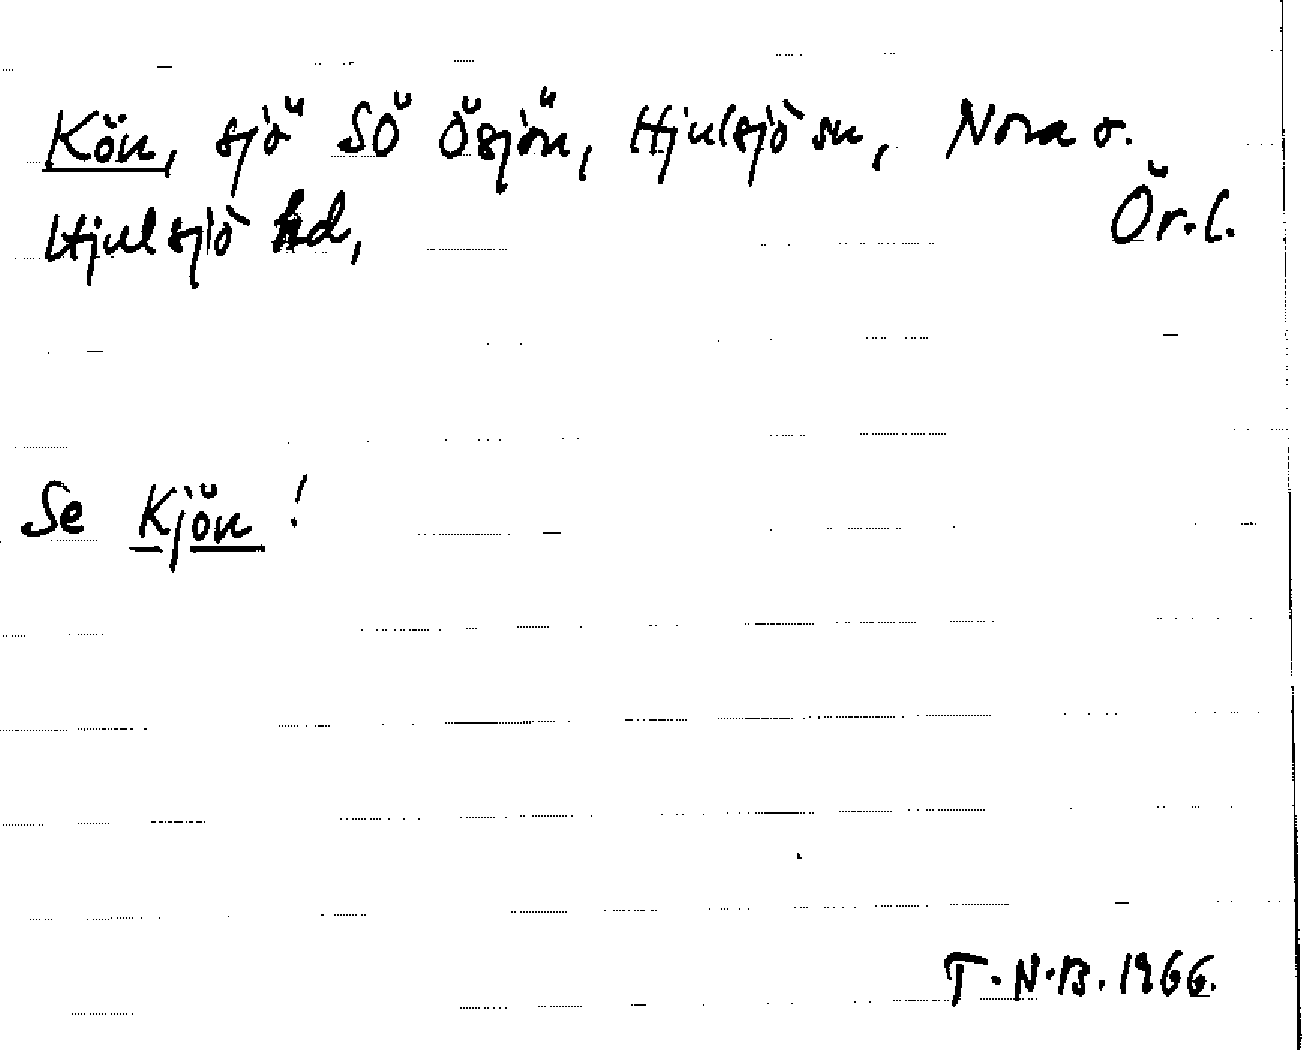 Kön, sjö SÖ Ösjön, Hjulsjö sn, Nora o.
Hjulsjö hd, Ör.l.
Se Kjön!
T.N.B. 1966.